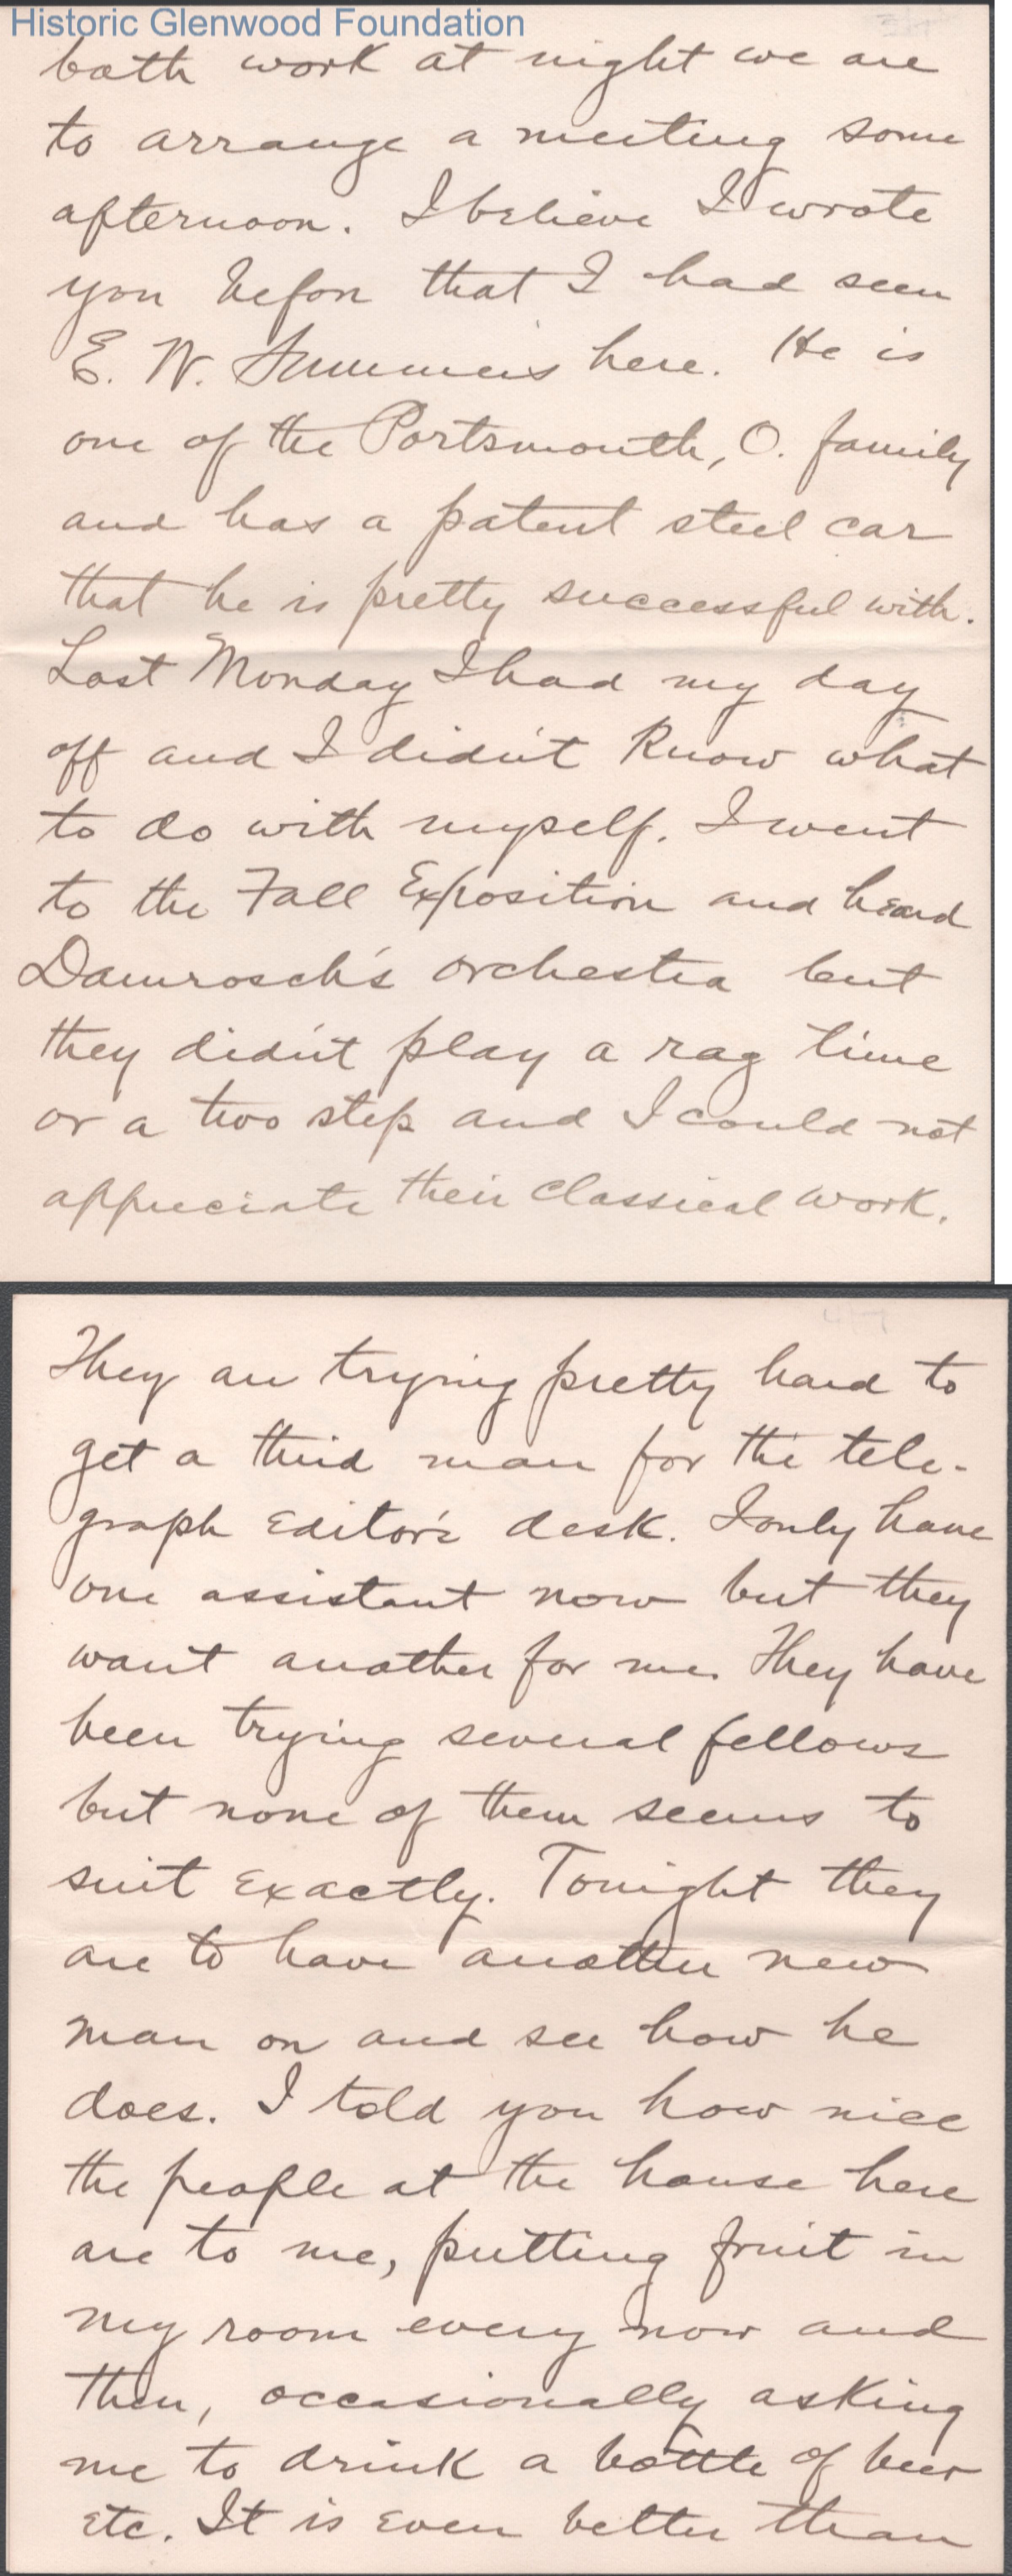 Historic Glenwood Foundation
both work at night we are
to arrange a meeting some
afternoon. I believe I wrote
you before that I had seen
E. W. Summers here. He is
one of the Portsmouth, O. family
and has a patent steel car
that he is pretty successful with.
Last Monday I had my day
off and I didn't know what
to do with myself. I went
to the Fall Exposition and heard
Damrosch's orchestra but
they didn't play a rag time
or a two step and I could not
appreciate their classical work.
They are trying pretty hard to
get a third man for the tele-
graph editor's desk. I only have
one assistant now but they
want another for me. They have
been trying several fellows
but none of them seems to
suit exactly. Tonight they
are to have another new
man on and see how he
does. I told you how nice
the people at the house here
are to me, putting fruit in
my room every now and
then, occasionally asking
me to drink a bottle of beer
etc. It is even better than